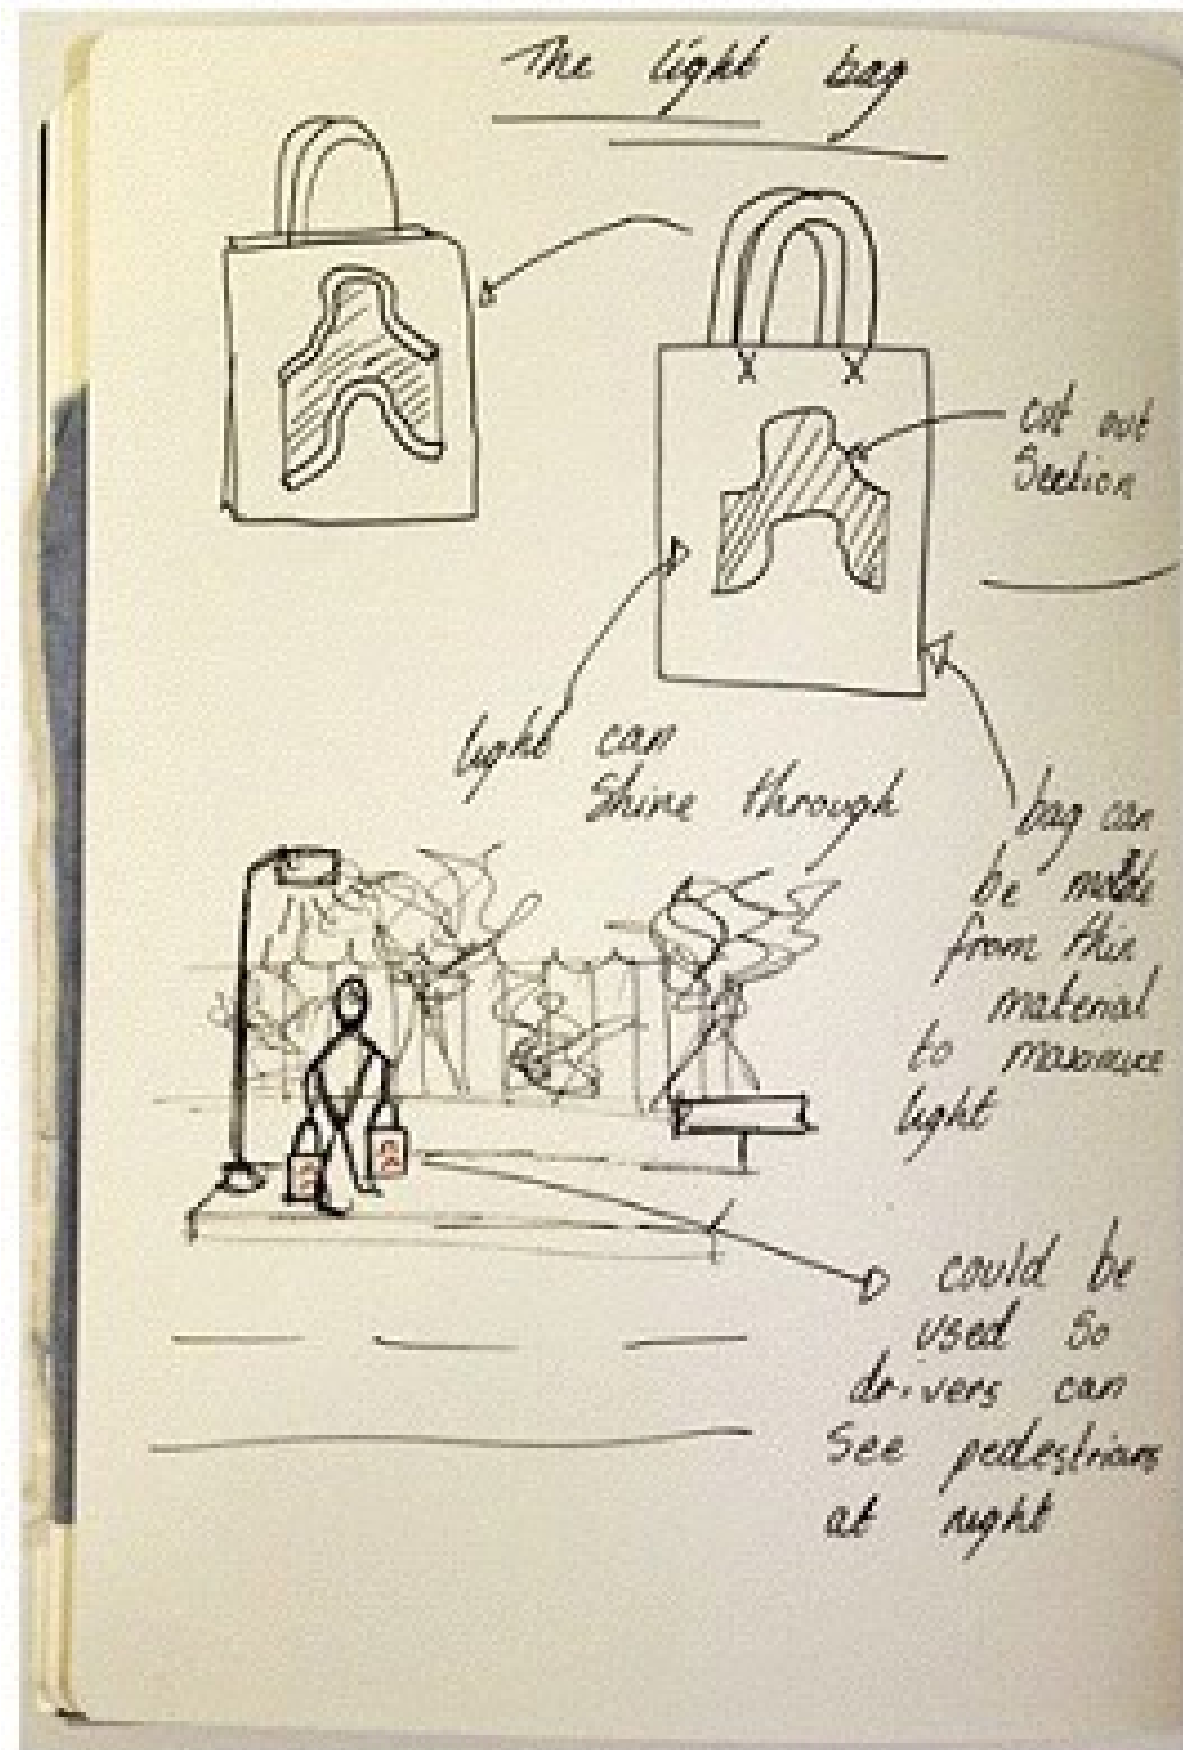 The light bag
cut out
Section
light can
shine through
bag can
be made
from thin
material
to maximize
light
could be
used so
drivers can
see pedestrians
at night